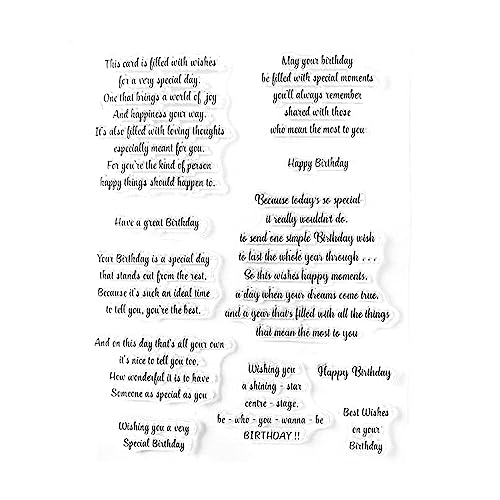 This card is filled with wishes
for a very special day.
One that brings a world of joy
And happiness your way.
It's also filled with loving thoughts
especially meant for you.
For you're the kind of person
happy things should happen to.
Have a great Birthday
Your Birthday is a special day
that stands out from the rest.
Because it's such an ideal time
to tell you, you're the best.
And on this day that's all your own
it's nice to tell you too,
How wonderful it is to have
Someone as special as you
Wishing you a very
Special Birthday
May your birthday
be filled with special moments
you'll always remember
shared with those
who mean the most to you
Happy Birthday
Because today's so special
it really wouldn't do,
to send one simple Birthday wish
to last the whole year through . . .
So this wishes happy moments,
a day when your dreams come true,
and a year that's filled with all the things
that mean the most to you
Wishing you
a shining - star
centre - stage,
be - who - you - wanna - be
BIRTHDAY !!
Happy Birthday
Best Wishes
on your
Birthday